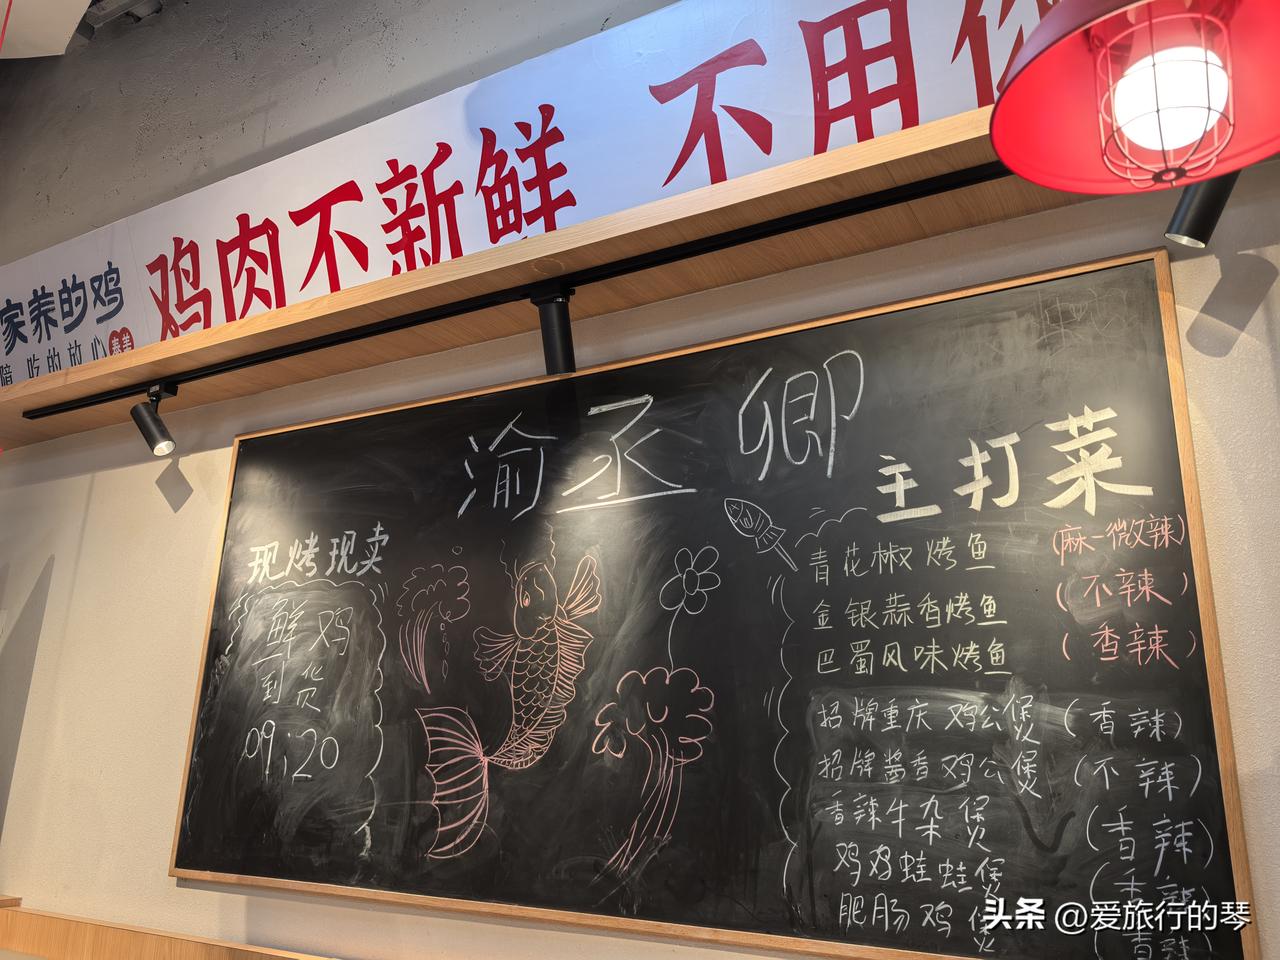 家养的鸡
吃的放心
泰美
鸡肉不新鲜 不用
渝丞卿
现烤现卖
鲜鸡
到货
09:20
主打菜
青花椒烤鱼 (麻一微辣)
金银蒜香烤鱼 (不辣)
巴蜀风味烤鱼 (香辣)
招牌重庆鸡公煲 (香辣)
招牌酱香鸡公煲 (不辣)
香辣牛杂煲 (香辣)
鸡鸡蛙蛙煲 (香辣
肥肠鸡煲 (香辣
头条 @爱旅行的琴